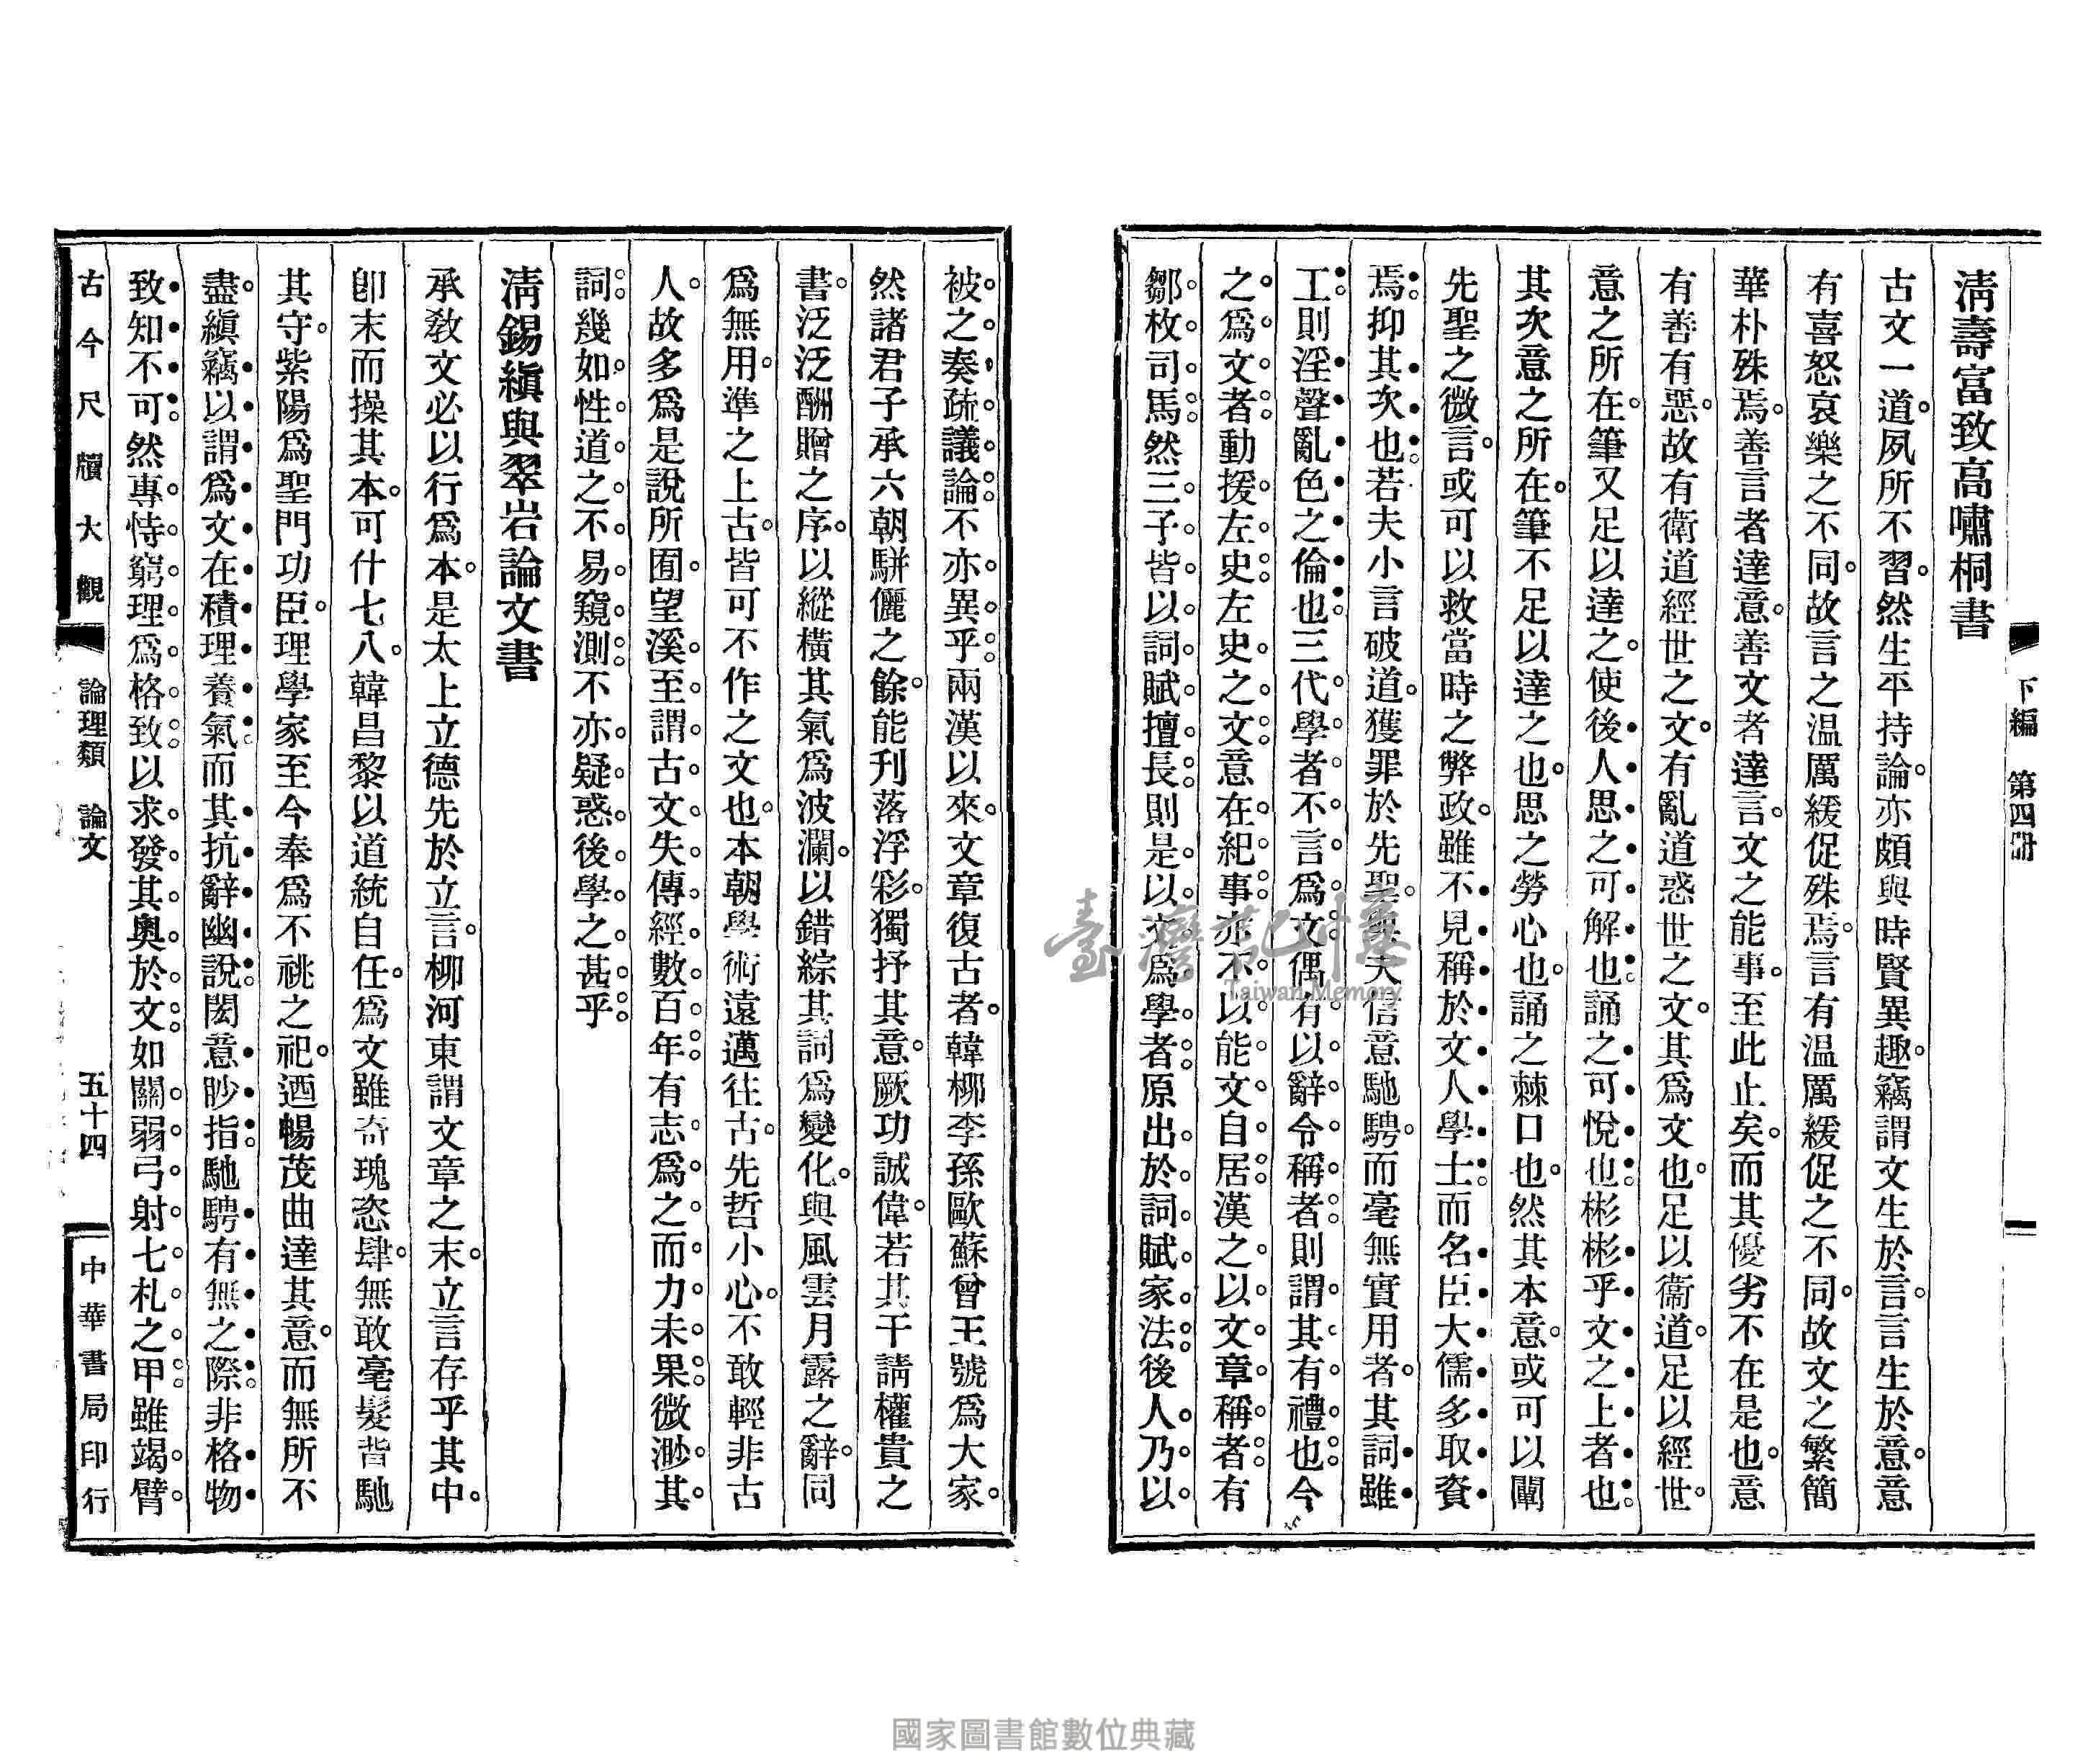 下編　第四冊
清壽富致高嘯桐書
古文一道。夙所不習。然生平持論。亦頗與時賢異趣。竊謂文生於言。言生於意。意
有喜怒哀樂之不同。故言之溫厲緩促殊焉。言有溫厲緩促之不同。故文之繁簡
華朴殊焉。善言者達意。善文者達言。文之能事。至此止矣。而其優劣不在是也。意
有善有惡。故有衛道經世之文。有亂道惑世之文。其爲文也。足以衞道。足以經世。
意之所在。筆又足以達之。使後人思之可解也。誦之可悅也。彬彬乎文之上者也。
其次意之所在。筆不足以達之也。思之勞心也。誦之棘口也。然其本意。或可以闡
先聖之微言。或可以救當時之弊政。雖不見稱於文人學士。而名臣大儒多取資
焉。抑其次也。若夫小言破道。獲罪於先聖。
信意馳騁。而毫無實用者。其詞雖
工。則淫聲亂色之倫也。三代學者。不言爲文。偶有以辭令稱者。則謂其有禮也。今
之爲文者。動援左史。左史之文。意在紀事。亦不以能文自居。漢之以文章稱者。有
鄒枚司馬。然三子皆以詞賦擅長。則是以文爲學者。原出於詞賦家法。後人乃以
被之奏疏議論。不亦異乎。兩漢以來。文章復古者。韓柳李孫歐蘇曾王號爲大家。
然諸君子承六朝駢儷之餘。能刋落浮彩。獨抒其意。厥功誠偉。若其干請權貴之
書。泛泛酬贈之序。以縱橫其氣爲波瀾。以錯綜其詞爲變化。與風雲月露之辭。同
爲無用。準之上古。皆可不作之文也。本朝學術遠邁往古。先哲小心。不敢輕非古
人。故多爲是說所囿。望溪至謂古文失傳。經數百年。有志爲之。而力未果。微渺其
詞。幾如性道之不易窺測。不亦疑惑後學之甚乎。
清錫縝與翠岩論文書
承敎文必以行爲本。是太上立德。先於立言。柳河東謂文章之末。立言存乎其中。
卽末而操其本。可什七八。韓昌黎以道統自任。爲文雖奇瑰恣肆。無敢毫髮背馳
其守。紫陽爲聖門功臣。理學家至今奉爲不祧之祀。迺暢茂曲達其意。而無所不
盡。縝竊以謂爲文在積理養氣。而其抗辭幽說。閎意眇指。馳騁有無之際。非格物
致知不可。然專恃窮理爲格致。以求發其奧於文。如關弱弓射七札之甲。雖竭臂
古今尺牘大觀　論理類　論文　五十四　中華書局印行
臺灣記憶
Taiwan Memory
國家圖書館數位典藏